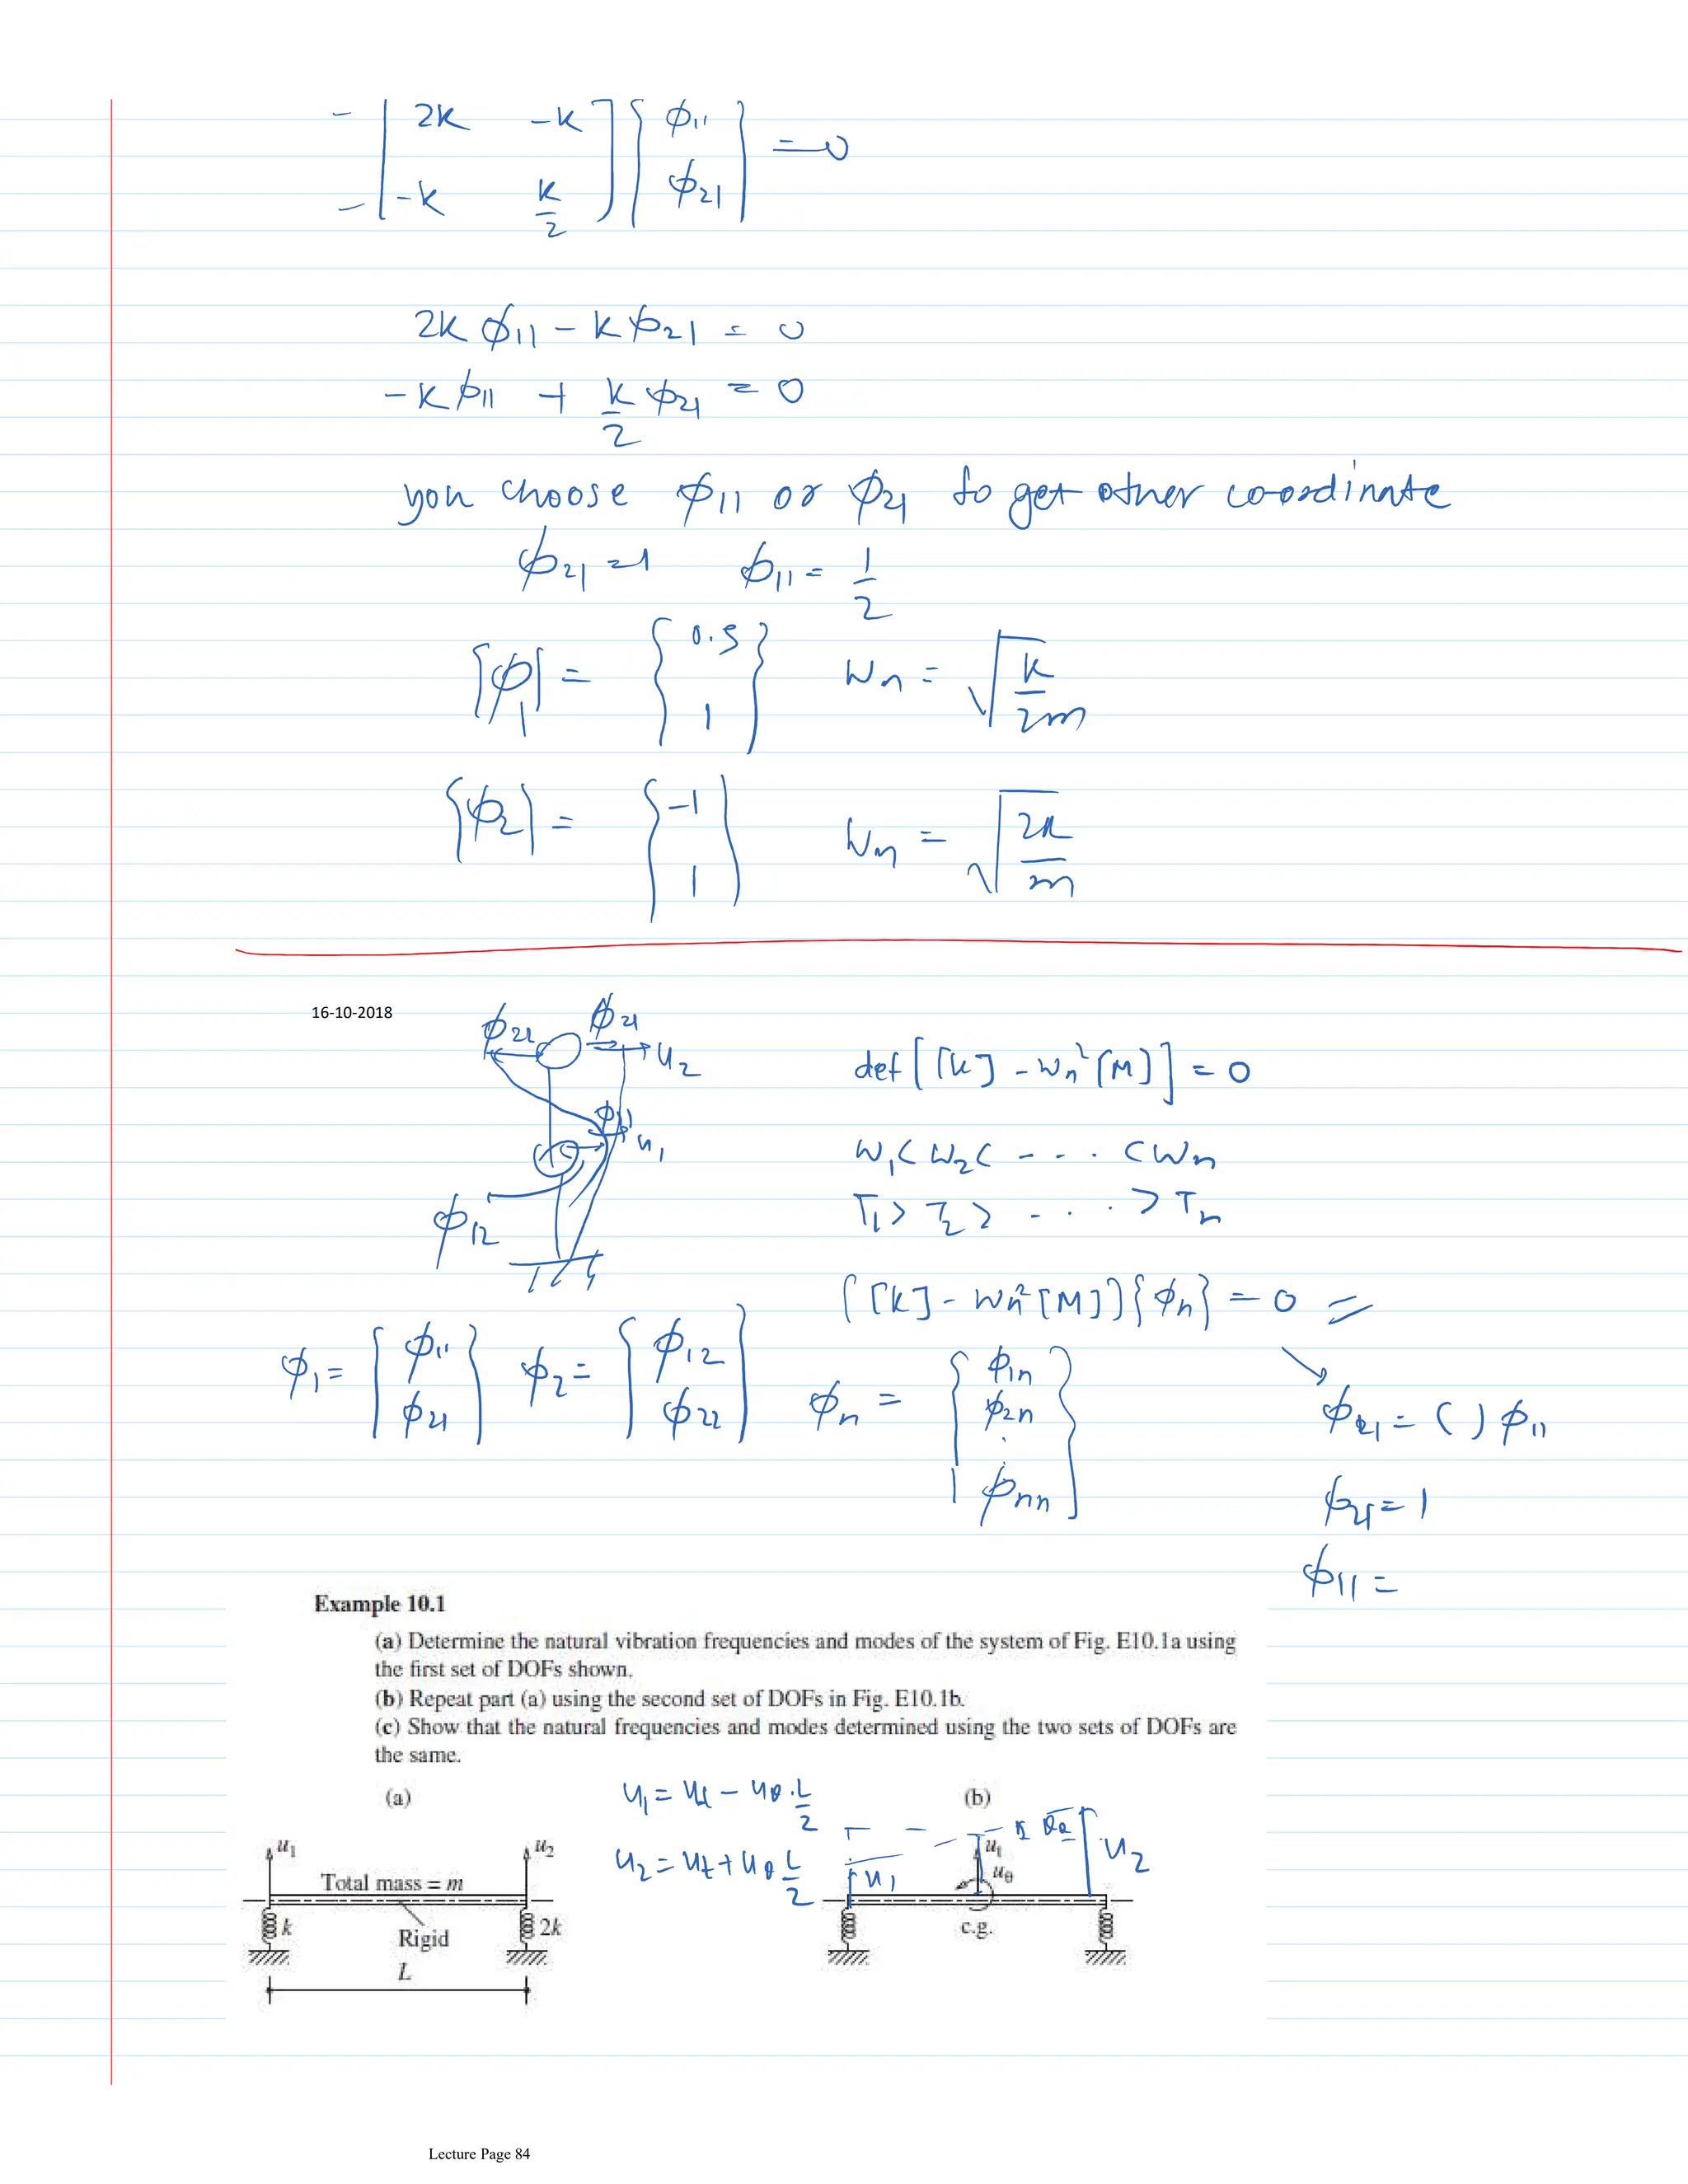 - [ 2k -k ] { ϕ11 } = 0
- [ -k k/2 ] { ϕ21 }
2k ϕ11 - k ϕ21 = 0
-k ϕ11 + k/2 ϕ21 = 0
you choose ϕ11 or ϕ21 to get other coordinate
ϕ21 = 1 ϕ11 = 1/2
{ϕ1} = { 0.5 1 } Wn = √(k/2m)
{ϕ2} = { -1 1 } Wn = √(2k/m)
16-10-2018
ϕ22 ϕ21 u2
ϕ11 u1
ϕ12
def [[k] - Wn²[M]] = 0
W1 < W2 < - - . . < Wn
T1 > T2 > - . . . > Tn
([k] - Wn²[M]){ϕn} = 0 =
ϕ1 = { ϕ11 ϕ21 } ϕ2 = { ϕ12 ϕ22 } ϕn = { ϕ1n ϕ2n : ϕnn }
ϕ21 = ( ) ϕ11
ϕ21 = 1
ϕ11 =
Example 10.1
(a) Determine the natural vibration frequencies and modes of the system of Fig. E10.1a using
the first set of DOFs shown.
(b) Repeat part (a) using the second set of DOFs in Fig. E10.1b.
(c) Show that the natural frequencies and modes determined using the two sets of DOFs are
the same.
(a)
u1 = ut - uθ . L/2
u2 = ut + uθ L/2
(b)
u1
u2
Total mass = m
k
Rigid
2k
L
u1
ut
uθ
u2
c.g.
Lecture Page 84